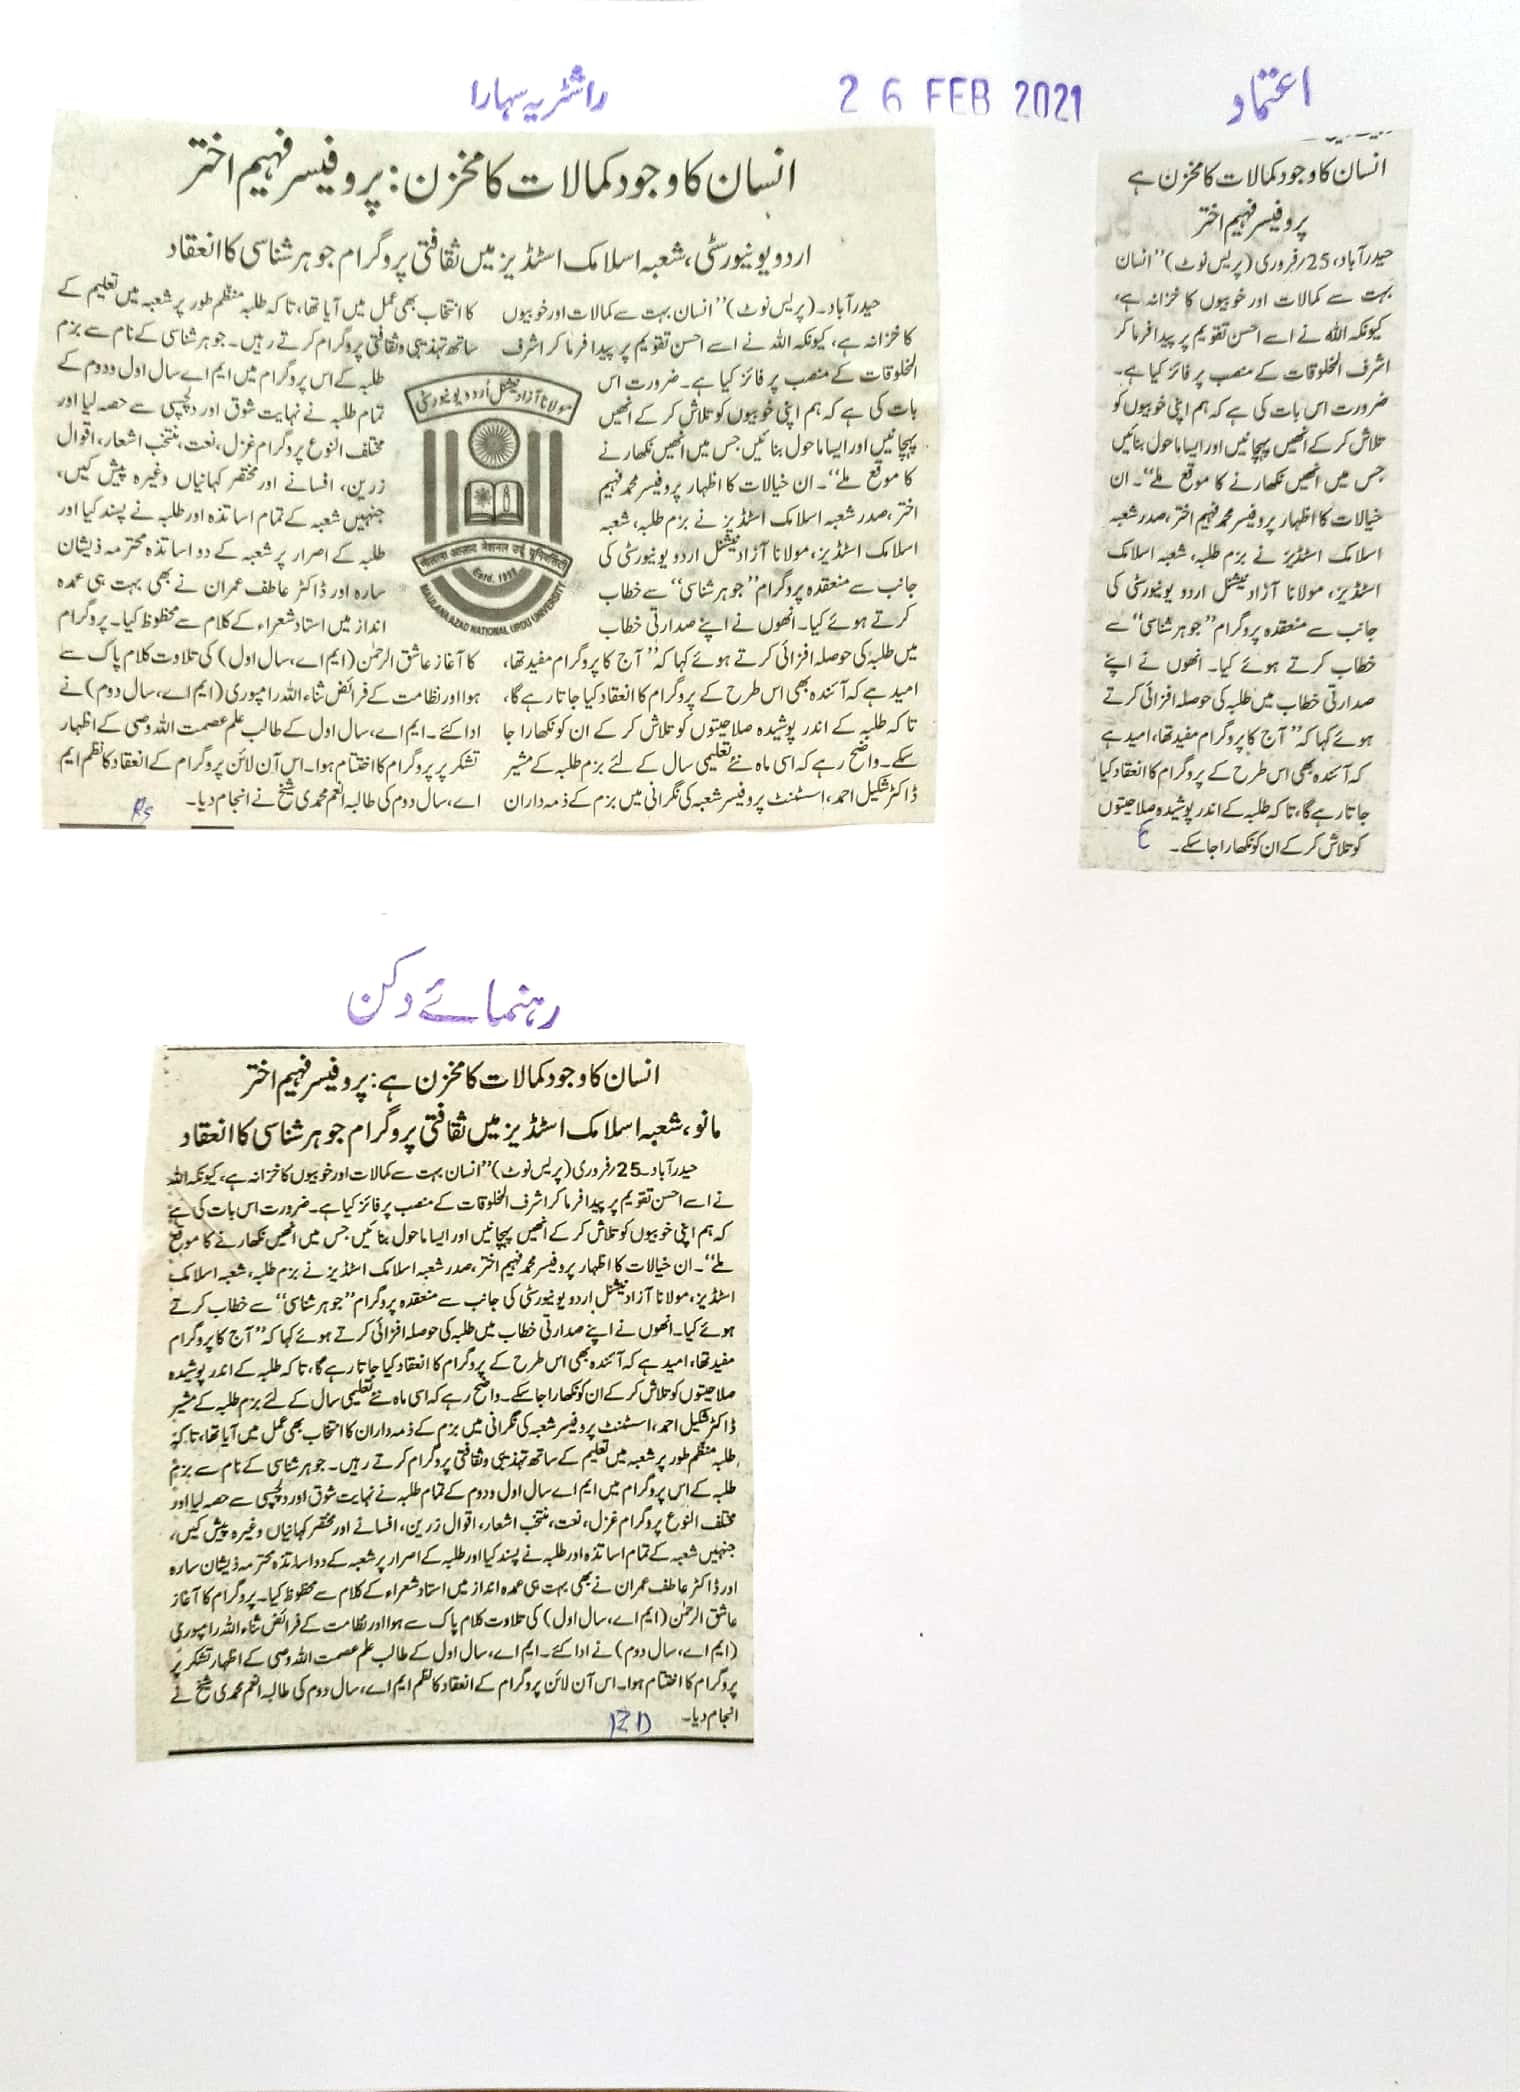 راشٹریہ سہارا
26 FEB 2021
اعتماد
انسان کا وجود کمالات کا مخزن : پروفیسر فہیم اختر
اردو یونیورسٹی، شعبہ اسلامک اسٹڈیز میں ثقافتی پروگرام جوہر شناسی کا انعقاد
حیدرآباد۔ (پریس نوٹ) ’’انسان بہت سے کمالات اور خوبیوں
کا خزانہ ہے، کیونکہ اللہ نے اسے احسن تقویم پر پیدا فرما کر اشرف
المخلوقات کے منصب پر فائز کیا ہے۔ ضرورت اس
بات کی ہے کہ ہم اپنی خوبیوں کو تلاش کر کے انھیں
پہچانیں اور ایسا ماحول بنائیں جس میں انھیں نکھارنے
کا موقع ملے‘‘۔ ان خیالات کا اظہار پروفیسر محمد فہیم
اختر، صدر شعبہ اسلامک اسٹڈیز نے بزم طلبہ، شعبہ
اسلامک اسٹڈیز، مولانا آزاد نیشنل اردو یونیورسٹی کی
جانب سے منعقدہ پروگرام ’’جوہر شناسی‘‘ سے خطاب
کرتے ہوئے کیا۔ انھوں نے اپنے صدارتی خطاب
میں طلبہ کی حوصلہ افزائی کرتے ہوئے کہا کہ ’’ آج کا پروگرام مفید تھا،
امید ہے کہ آئندہ بھی اس طرح کے پروگرام کا انعقاد کیا جاتا رہے گا،
تاکہ طلبہ کے اندر پوشیدہ صلاحیتوں کو تلاش کر کے ان کو نکھارا جا
سکے۔ واضح رہے کہ اسی ماہ نئے تعلیمی سال کے لئے بزم طلبہ کے مشیر
ڈاکٹر شکیل احمد، اسسٹنٹ پروفیسر شعبہ کی نگرانی میں بزم کے ذمہ داران
کا انتخاب بھی عمل میں آیا تھا، تاکہ طلبہ منظم طور پر شعبہ میں تعلیم کے
ساتھ تہذیبی و ثقافتی پروگرام کرتے رہیں۔ جوہر شناسی کے نام سے بزم
طلبہ کے اس پروگرام میں ایم اے سال اول ودوم کے
تمام طلبہ نے نہایت شوق اور دلچسپی سے حصہ لیا اور
مختلف النوع پروگرام غزل، نعت، منتخب اشعار، اقوال
زریں، افسانے اور مختصر کہانیاں وغیرہ پیش کیں،
جنہیں شعبہ کے تمام اساتذہ اور طلبہ نے پسند کیا اور
طلبہ کے اصرار پر شعبہ کے دو اساتذہ محترمہ ذیشان
سارہ اور ڈاکٹر عاطف عمران نے بھی بہت ہی عمدہ
انداز میں استاد شعراء کے کلام سے محظوظ کیا۔ پروگرام
کا آغاز عاشق الرحمٰن (ایم اے، سال اول) کی تلاوت کلام پاک سے
ہوا اور نظامت کے فرائض ثناء اللہ رامپوری (ایم اے، سال دوم) نے
ادا کئے۔ ایم اے، سال اول کے طالب علم عصمت اللہ وصی کے اظہار
تشکر پر پروگرام کا اختتام ہوا۔ اس آن لائن پروگرام کے انعقاد کا نظم ایم
اے، سال دوم کی طالبہ انعم محمدی شیخ نے انجام دیا۔
RS
مولانا آزاد نیشنل اُردو یونیورسٹی
मौलाना आज़ाद नेशनल उर्दू यूनिवर्सिटी
Estd. 1998
MAULANA AZAD NATIONAL URDU UNIVERSITY
انسان کا وجود کمالات کا مخزن ہے
پروفیسر فہیم اختر
حیدرآباد، 25/فروری (پریس نوٹ) ’’انسان
بہت سے کمالات اور خوبیوں کا خزانہ ہے،
کیونکہ اللہ نے اسے احسن تقویم پر پیدا فرما کر
اشرف المخلوقات کے منصب پر فائز کیا ہے۔
ضرورت اس بات کی ہے کہ ہم اپنی خوبیوں کو
تلاش کر کے انھیں پہچانیں اور ایسا ماحول بنائیں
جس میں انھیں نکھارنے کا موقع ملے‘‘۔ ان
خیالات کا اظہار پروفیسر محمد فہیم اختر، صدر شعبہ
اسلامک اسٹڈیز نے بزم طلبہ، شعبہ اسلامک
اسٹڈیز، مولانا آزاد نیشنل اردو یونیورسٹی کی
جانب سے منعقدہ پروگرام ’’جوہر شناسی‘‘ سے
خطاب کرتے ہوئے کیا۔ انھوں نے اپنے
صدارتی خطاب میں طلبہ کی حوصلہ افزائی کرتے
ہوئے کہا کہ ’’ آج کا پروگرام مفید تھا، امید ہے
کہ آئندہ بھی اس طرح کے پروگرام کا انعقاد کیا
جاتا رہے گا، تاکہ طلبہ کے اندر پوشیدہ صلاحیتوں
کو تلاش کر کے ان کو نکھارا جا سکے۔
رہنمائے دکن
انسان کا وجود کمالات کا مخزن ہے: پروفیسر فہیم اختر
مانو، شعبہ اسلامک اسٹڈیز میں ثقافتی پروگرام جوہر شناسی کا انعقاد
حیدرآباد۔25/فروری (پریس نوٹ) ’’انسان بہت سے کمالات اور خوبیوں کا خزانہ ہے، کیونکہ اللہ
نے اسے احسن تقویم پر پیدا فرما کر اشرف المخلوقات کے منصب پر فائز کیا ہے۔ ضرورت اس بات کی ہے
کہ ہم اپنی خوبیوں کو تلاش کر کے انھیں پہچانیں اور ایسا ماحول بنائیں جس میں انھیں نکھارنے کا موقع
ملے‘‘۔ ان خیالات کا اظہار پروفیسر محمد فہیم اختر، صدر شعبہ اسلامک اسٹڈیز نے بزم طلبہ، شعبہ اسلامک
اسٹڈیز، مولانا آزاد نیشنل اردو یونیورسٹی کی جانب سے منعقدہ پروگرام ’’جوہر شناسی‘‘ سے خطاب کرتے
ہوئے کیا۔ انھوں نے اپنے صدارتی خطاب میں طلبہ کی حوصلہ افزائی کرتے ہوئے کہا کہ ’’ آج کا پروگرام
مفید تھا، امید ہے کہ آئندہ بھی اس طرح کے پروگرام کا انعقاد کیا جاتا رہے گا، تاکہ طلبہ کے اندر پوشیدہ
صلاحیتوں کو تلاش کر کے ان کو نکھارا جا سکے۔ واضح رہے کہ اسی ماہ نئے تعلیمی سال کے لئے بزم طلبہ کے مشیر
ڈاکٹر شکیل احمد، اسسٹنٹ پروفیسر شعبہ کی نگرانی میں بزم کے ذمہ داران کا انتخاب بھی عمل میں آیا تھا، تاکہ
طلبہ منظم طور پر شعبہ میں تعلیم کے ساتھ تہذیبی و ثقافتی پروگرام کرتے رہیں۔ جوہر شناسی کے نام سے بزم
طلبہ کے اس پروگرام میں ایم اے سال اول ودوم کے تمام طلبہ نے نہایت شوق اور دلچسپی سے حصہ لیا اور
مختلف النوع پروگرام غزل، نعت، منتخب اشعار، اقوال زریں، افسانے اور مختصر کہانیاں وغیرہ پیش کیں،
جنہیں شعبہ کے تمام اساتذہ اور طلبہ نے پسند کیا اور طلبہ کے اصرار پر شعبہ کے دو اساتذہ محترمہ ذیشان سارہ
اور ڈاکٹر عاطف عمران نے بھی بہت ہی عمدہ انداز میں استاد شعراء کے کلام سے محظوظ کیا۔ پروگرام کا آغاز
عاشق الرحمٰن (ایم اے، سال اول) کی تلاوت کلام پاک سے ہوا اور نظامت کے فرائض ثناء اللہ رامپوری
(ایم اے، سال دوم) نے ادا کئے۔ ایم اے، سال اول کے طالب علم عصمت اللہ وصی کے اظہار تشکر پر
پروگرام کا اختتام ہوا۔ اس آن لائن پروگرام کے انعقاد کا نظم ایم اے، سال دوم کی طالبہ انعم محمدی شیخ نے
انجام دیا۔
RD